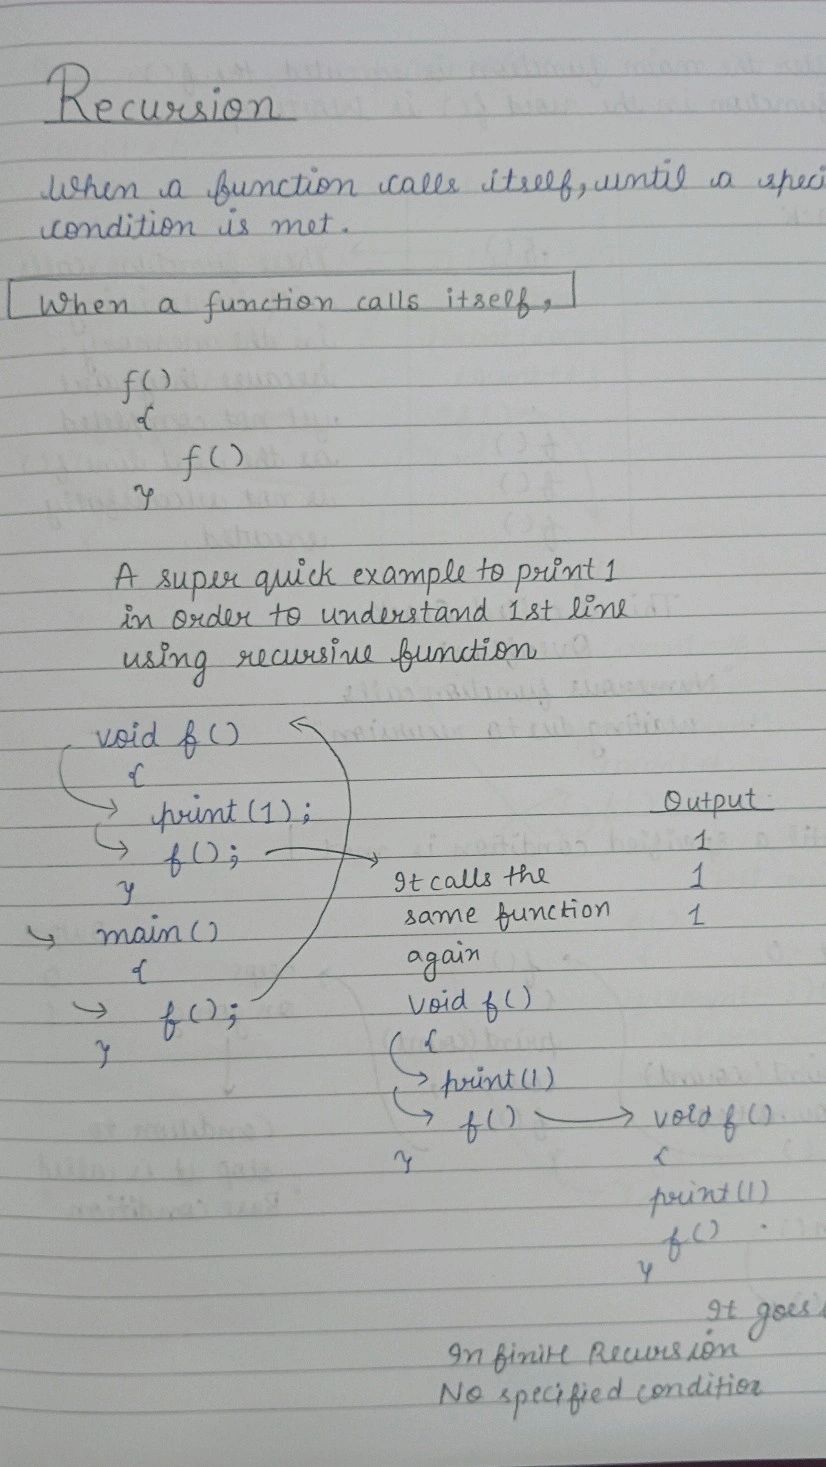 Recursion
When a function calls itself, until a speci
condition is met.
When a function calls itself,
f()
{
f()
}
A super quick example to print 1
in order to understand 1st line
using recursive function
void f()
{
print(1);
f();
}
main()
{
f();
}
It calls the
same function
again
void f()
{
print(1)
f()
}
void f()
{
print(1)
f()
}
Output
1
1
1
It goes
Infinite Recursion
No specified condition